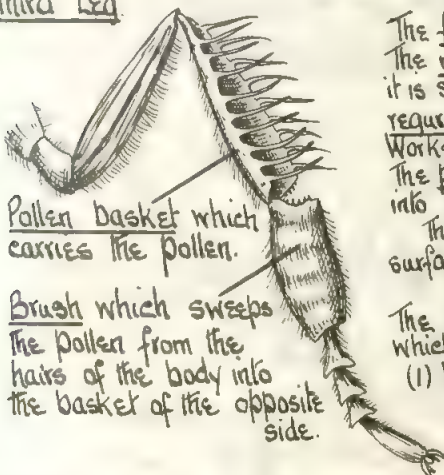 Third Leg
Pollen basket which
carries the pollen.
Brush which sweeps
the pollen from the
hairs of the body into
the basket of the opposite
side.
The
The
it is
The
into
The
which
(1)